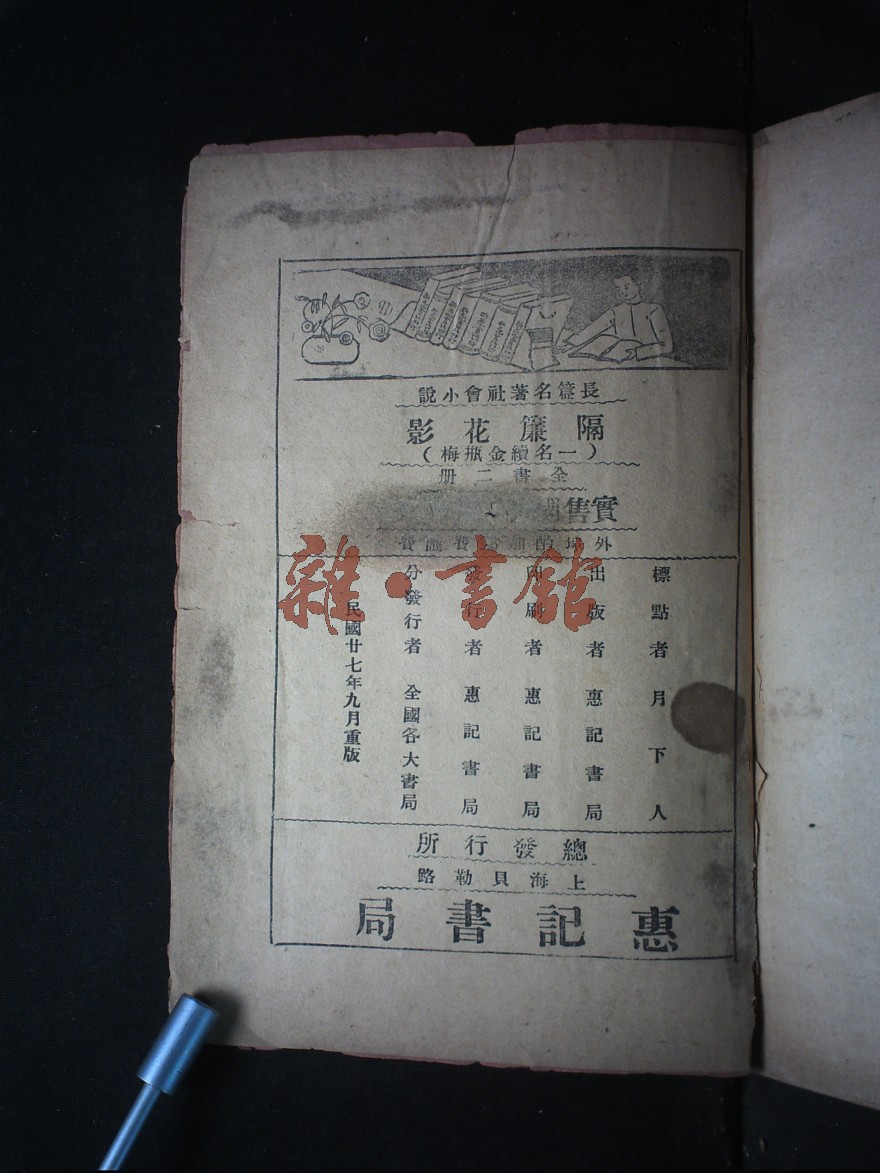 長篇名著社會小說
隔簾花影
(一名續金瓶梅)
全書二冊
實售
外埠酌加費
標點者 月下人
出版者 惠記書局
印刷者 惠記書局
發行者 惠記書局
分發行者 全國各大書局
民國廿七年九月重版
總發行所
上海貝勒路
惠記書局
雜·書館